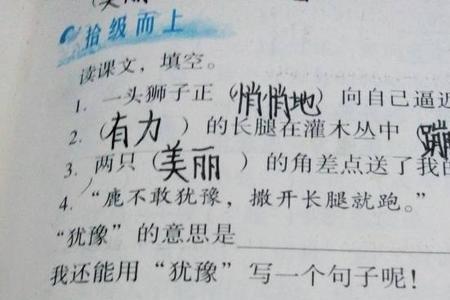 美丽
拾级而上
读课文，填空。
1. 一头狮子正（悄悄地）向自己逼近
2.（有力）的长腿在灌木丛中（蹦
3. 两只（美丽）的角差点送了我的
4. “鹿不敢犹豫，撒开长腿就跑。”
“犹豫”的意思是
我还能用“犹豫”写一个句子呢！